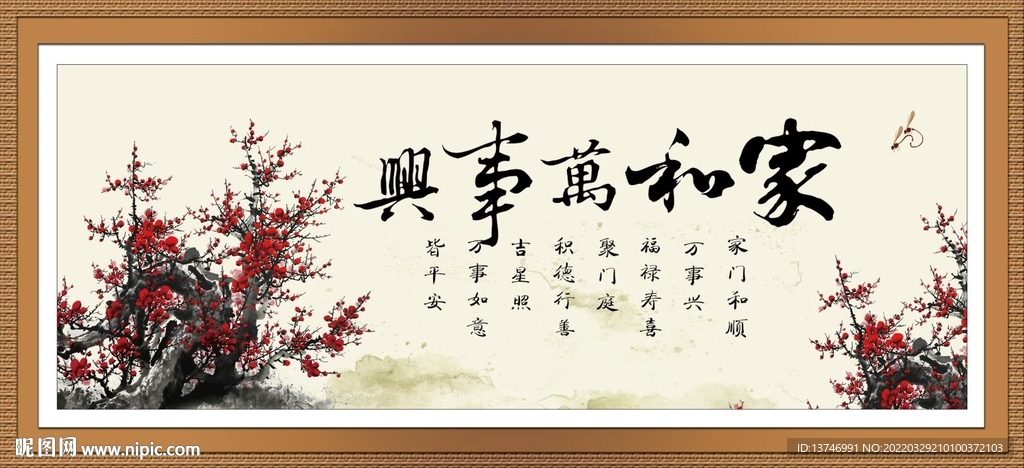 家和萬事興
家门和顺
万事兴
福禄寿喜
聚门庭
积德行善
吉星照
万事如意
皆平安
昵图网 www.nipic.com
ID:13746991 NO:20220329210100372103